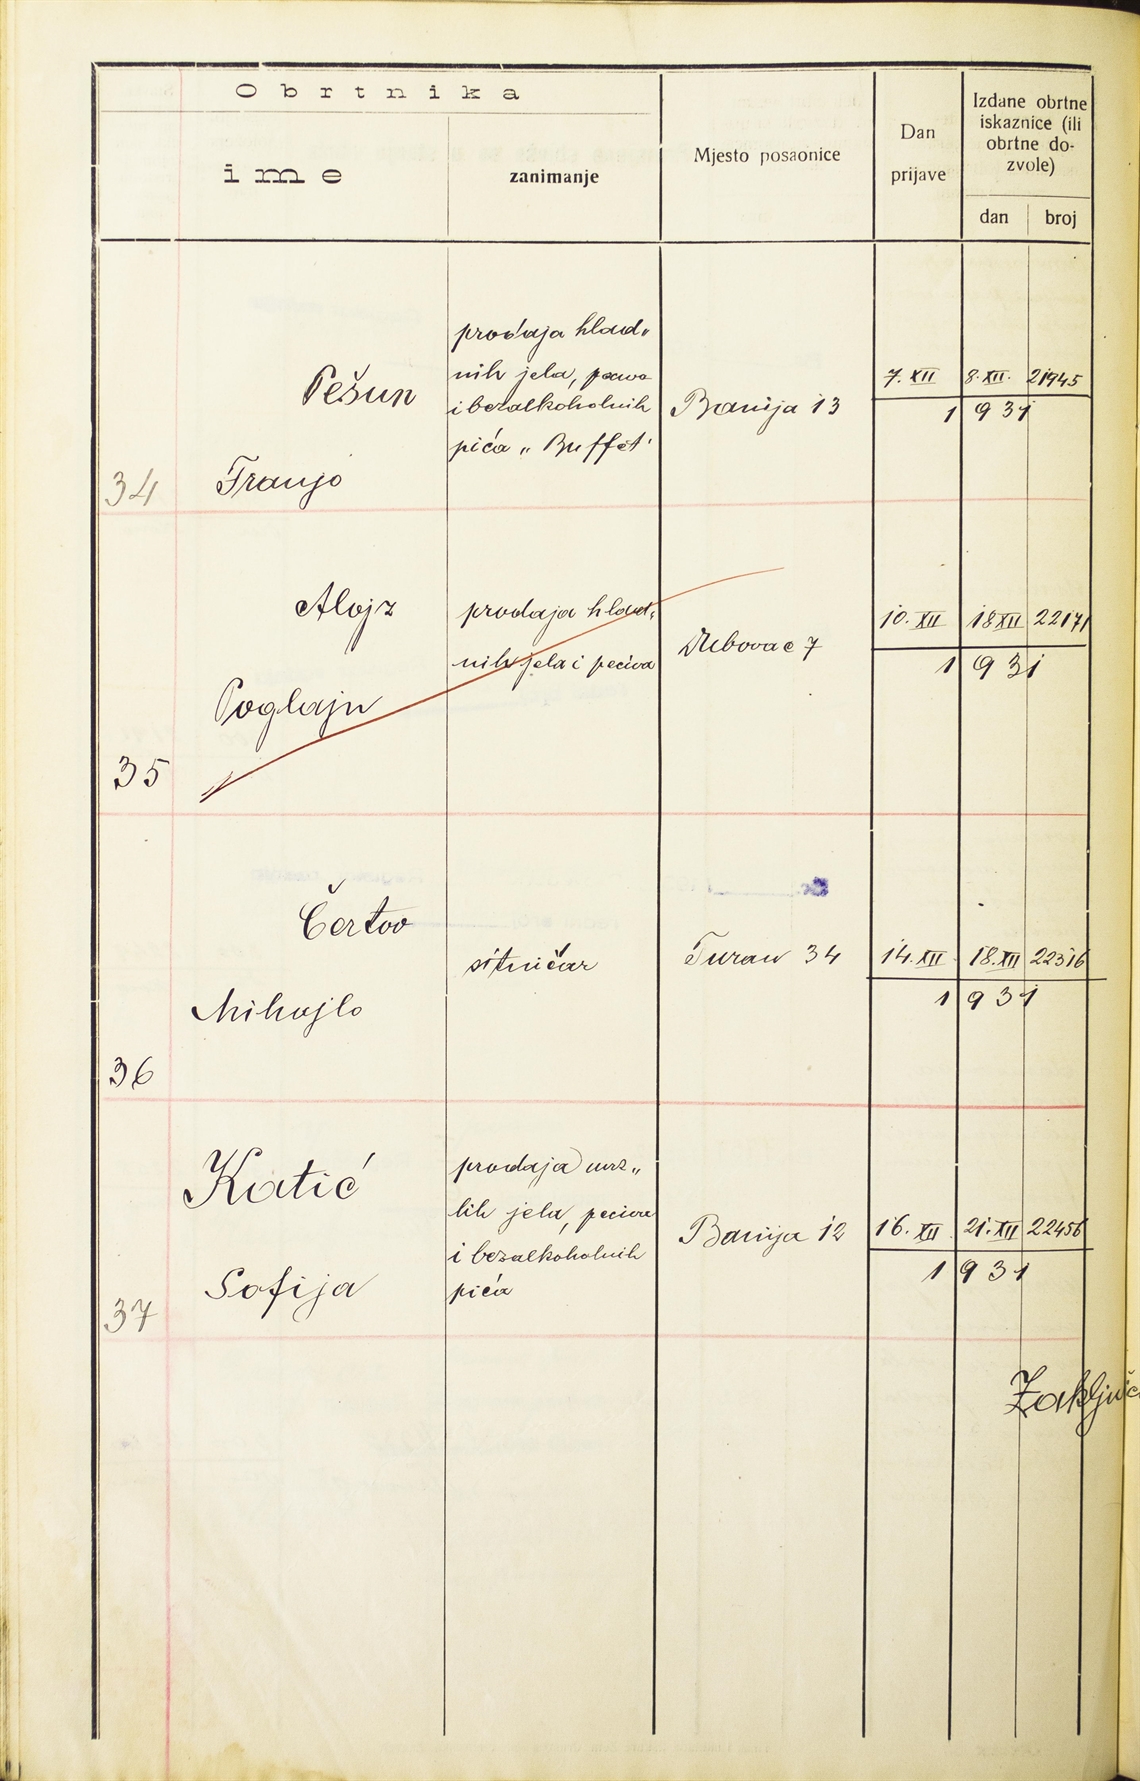 Obrtnika
ime
zanimanje
Mjesto posaonice
Dan
prijave
Izdane obrtne
iskaznice (ili
obrtne do-
zvole)
dan
broj
34
Pešun
Franjo
prodaja hlad„
nih jela, peciva
i bezalkoholnih
pića „Buffet"
Banija 13
7. XII
8. XII.
21945
1931
35
Alojz
Poglajn
prodaja hlad„
nih jela i peciva
Dubovac 7
10. XII
18 XII
22171
1931
36
Čertov
Mihajlo
sitničar
Turan 34
14. XII
18. XII
22316
1931
37
Katić
Sofija
prodaja mrz„
lih jela, peciva
i bezalkoholnih
pića
Banija 12
16. XII
21. XII
22456
1931